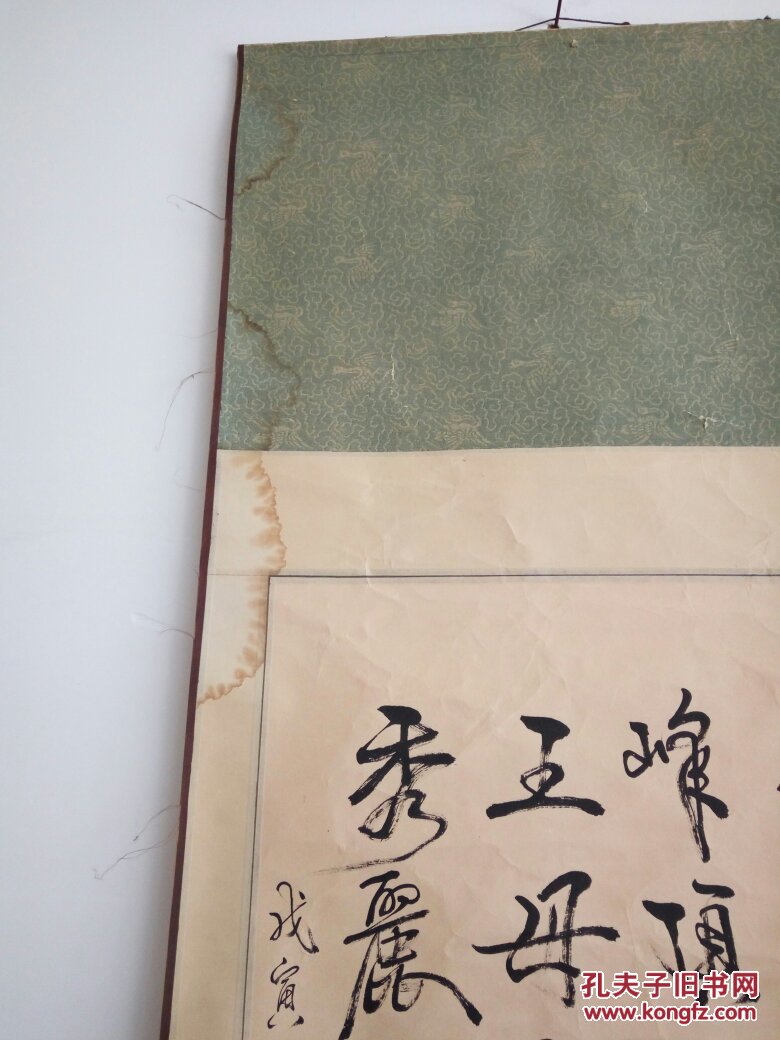 峰顶
王母
秀麗
戊寅
孔夫子旧书网
www.kongfz.com